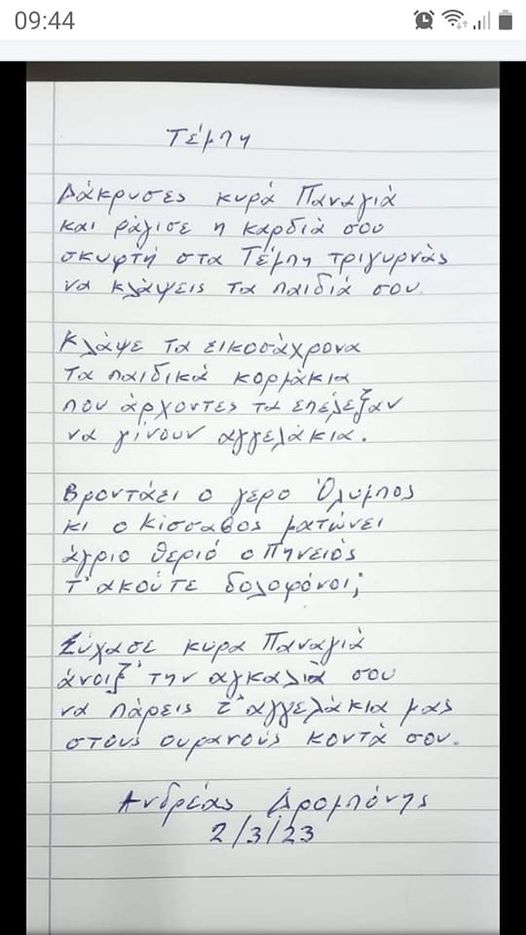 09:44
Τέμπη
Δάκρυσες κυρά Παναγιά
και ράγισε η καρδιά σου
σκυφτή στα Τέμπη τριγυρνάς
να κλάψεις τα παιδιά σου
Κλάψε τα εικοσάχρονα
τα παιδικά κορμάκια
που άρχοντες τα επέλεξαν
να γίνουν αγγελάκια.
Βροντάει ο γερο Όλυμπος
κι ο Κίσσαβος ματώνει
άγριο θεριό ο Πηνειός
τ' ακούτε δολοφόνοι;
Σύχασε κυρα Παναγιά
άνοιξ' την αγκαλιά σου
να πάρεις τ' αγγελάκια μας
στους ουρανούς κοντά σου.
Ανδρέας Δρομπόνης
2/3/23